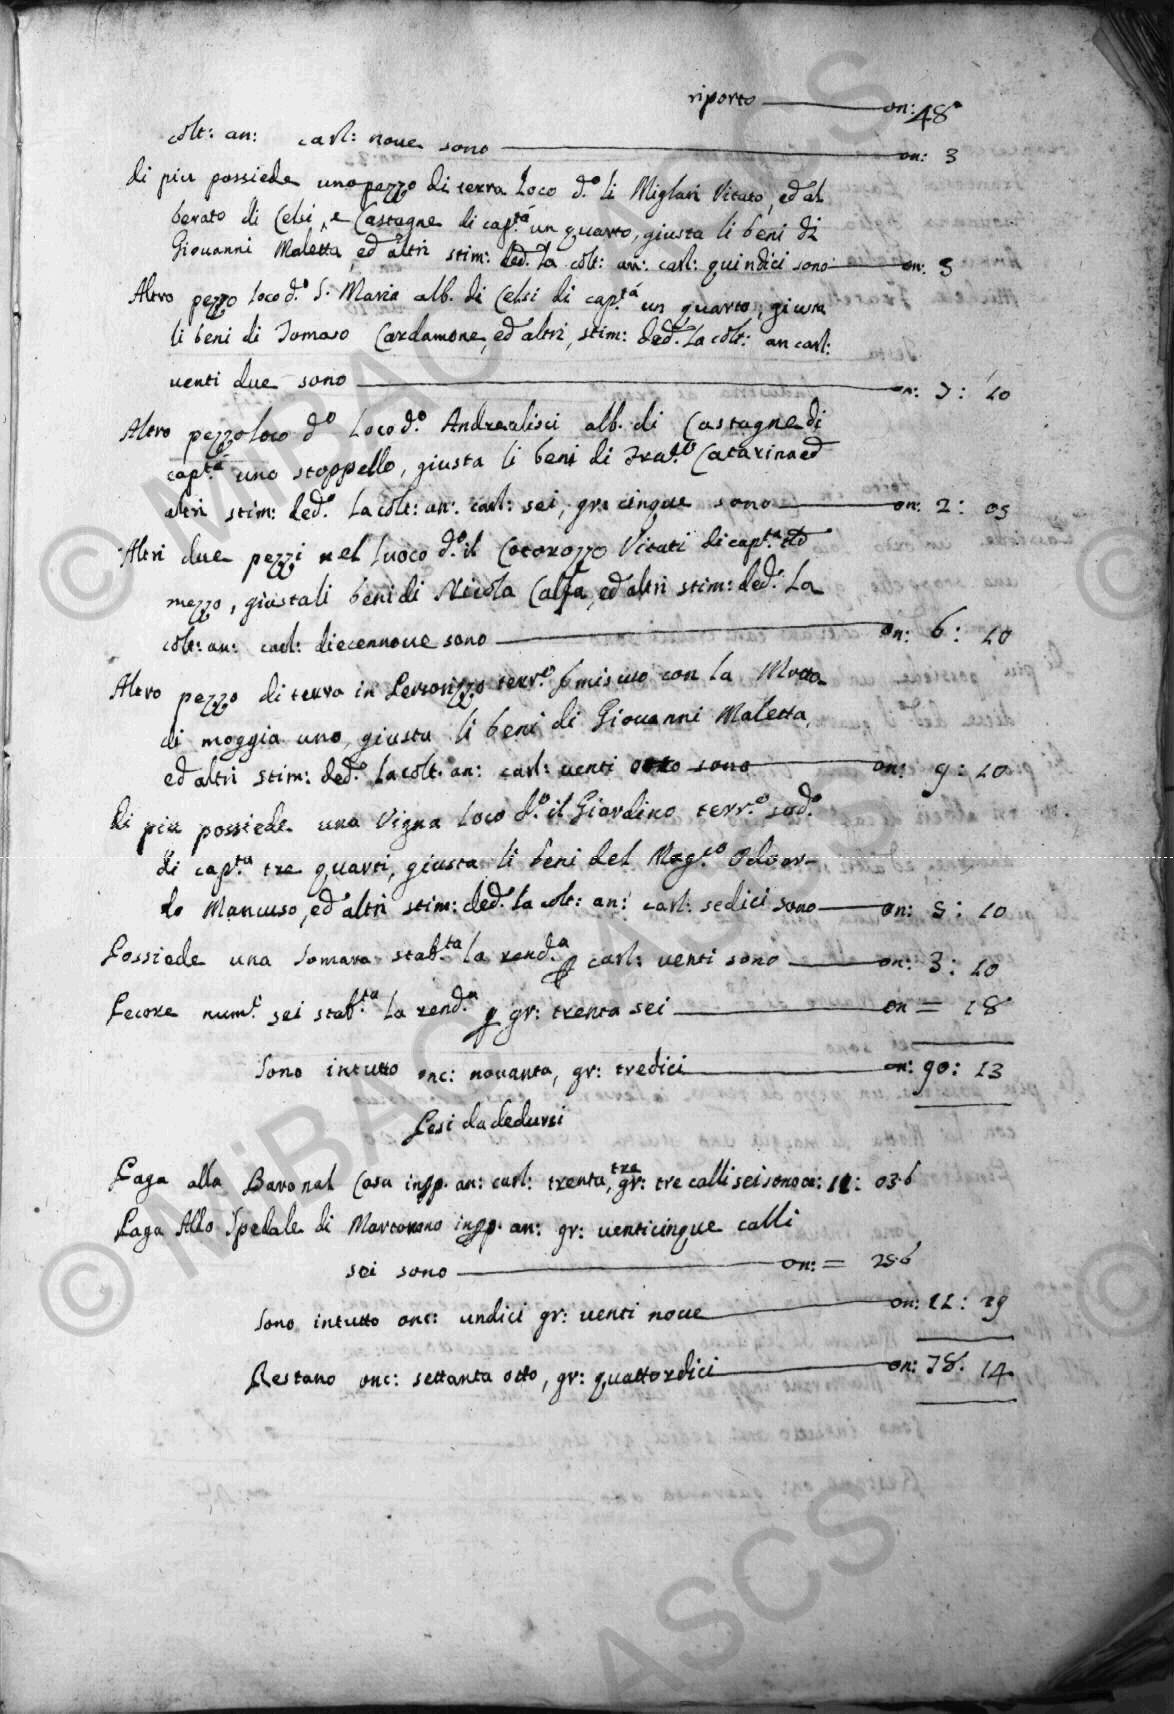 riporto on: 48
colt: an: carl: noue sono on: 3
di piu possiede uno pezzo di terra Loco d.o li Migliari Vitato, ed al
berato di Celsi, e Castagne di cap.tá un quarto, giusta li beni di
Giouanni Maletta, ed altri stim: ded.a la colt: an: carl: quindici sono on: 5
Altro pezzo loco d.o S. Maria alb. di Celsi di cap.tá un quarto, giusta
li beni di Tomaso Cardamone, ed altri, stim: ded.a La colt: an carl:
uenti due sono on: 7: 10
Altro pezzo loco d.o Loco d.o Andrealisci alb. di Castagne di
cap.tá uno stoppello, giusta li beni di Catarina ed
altri stim: ded.a La colt: an: carl: sei, gr: cinque sono on: 2: 05
Altri due pezzi nel luoco d.o il Cotorozzo Vitati di cap.ta
mezzo, giusta li beni di Nicola Calfa, ed altri stim: ded.a La
colt: an: carl: diecennoue sono on: 6: 10
Altro pezzo di terra in terr.o Pmiscuo con la Motta
di moggia uno, giusta li beni di Giouanni Maletta,
ed altri stim: ded.a la colt: an: carl: uenti otto sono on: 9: 10
di piu possiede una Vigna Loco d.o il Giardino terr.o sud.o
di cap.ta tre quarti, giusta li beni del Mag.co Odoar-
do Mancuso, ed altri stim: ded.a la colt: an: carl: sedici sono on: 5: 10
Possiede una Somara stab.ta la rend.a p carl: uenti sono on: 3: 10
Pecore num.o sei stab.ta la rend.a p gr: trenta sei on = 18
Sono intutto onc: nouanta, gr: tredici on: 90: 13
Pesi da dedursi
Paga alla Baronal Casa ingp. an: carl: trenta tre, gr: tre calli sei sono on: 11: 03.6
Paga Allo Spedale di Martorano ingp. an: gr: uenticinque calli
sei sono on: = 25.6
Sono intutto onc: undici gr: uenti noue on: 11: 29
Restano onc: settanta otto, gr: quattordici on: 78: 14
© MiBAC ASCS